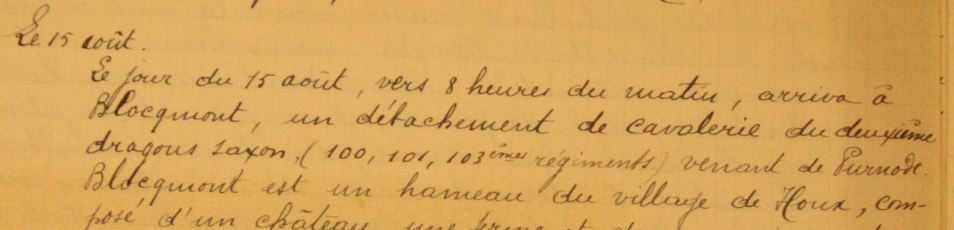 Le 15 août.
Le jour du 15 août, vers 8 heures du matin, arriva à
Blocqmont, un détachement de cavalerie du deuxième
dragons saxon, (100, 101, 103èmes régiments) venant de Purnode.
Blocqmont est un hameau du village de Houx, com-
posé d'un château, une ferme et